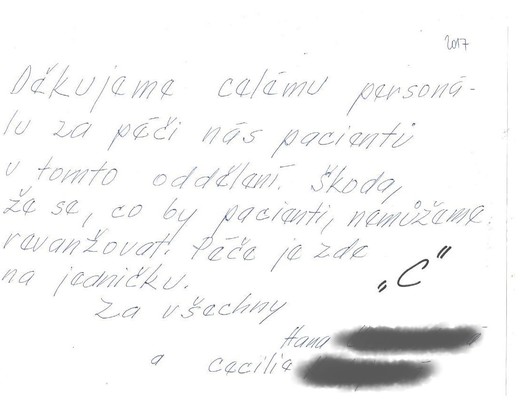 2017
Děkujeme celému personá-
lu za péči nás pacientů
v tomto oddělení. Škoda,
že se, co by pacienti, nemůžeme
revanžovat. Péče je zde
na jedničku. „C"
Za všechny
Hana
a Cecilie